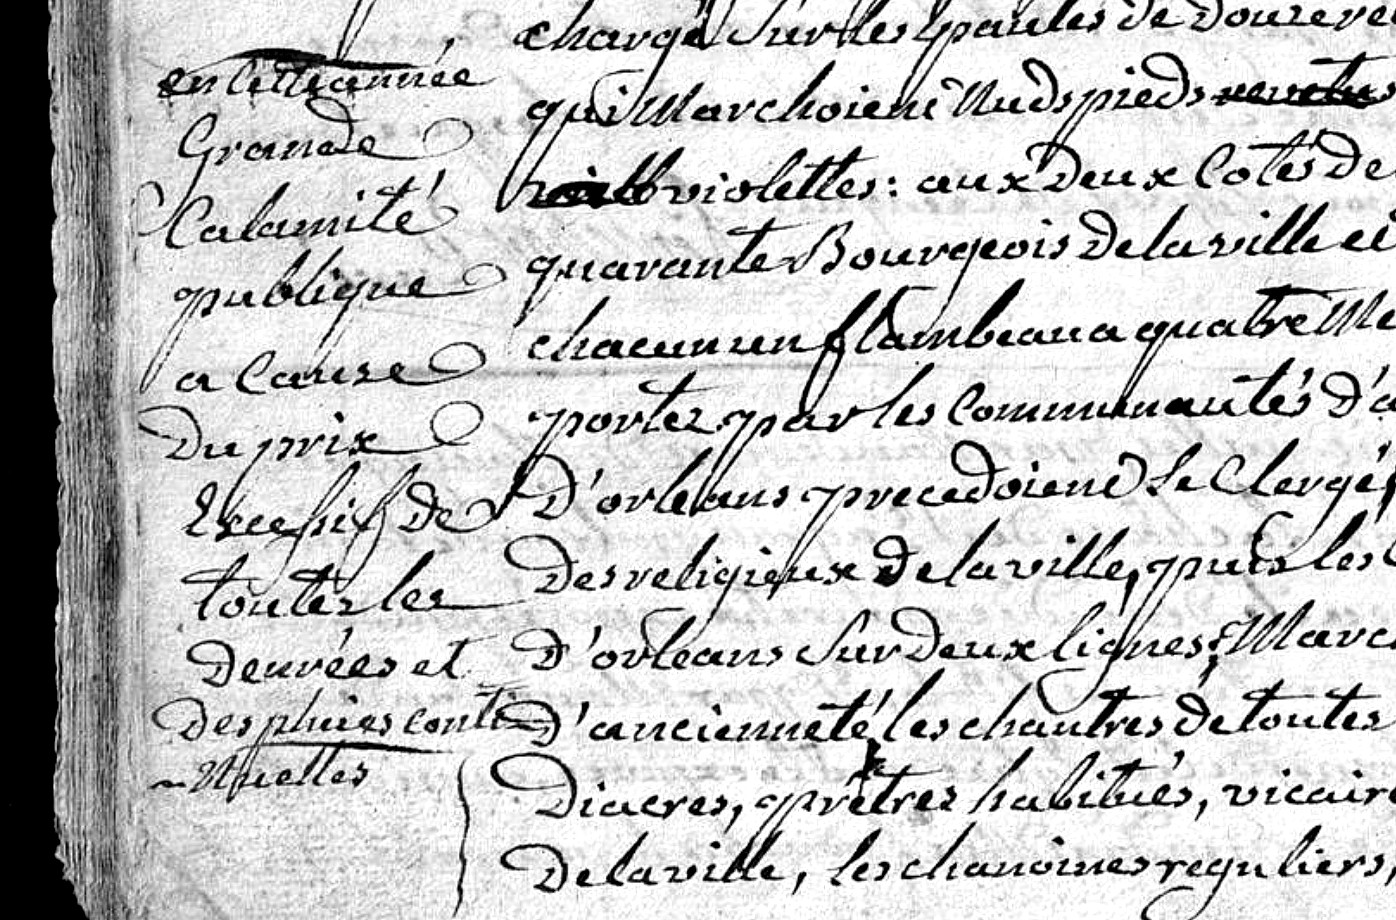 en cette année
Grande
Calamité
publique
a Cause
Du prix
Excessif de
toutes les
denrées et
Des pluies conti
-nuelles
chargé sur les epaules de douze
qui Marchoient Nuds pieds
violettes: aux deux Cotés de
quarante Bourgeois de la ville et
chacun un flambeau a quatre
portez par les Communautés
D'orleans precedoient Le Clergé
Des religieux de la ville, puis les
D'orleans Sur Deux lignes;
D'ancienneté, les chantres de toutes
Diacres, prêtres habitués,
De la ville, les chanoines reguliers,